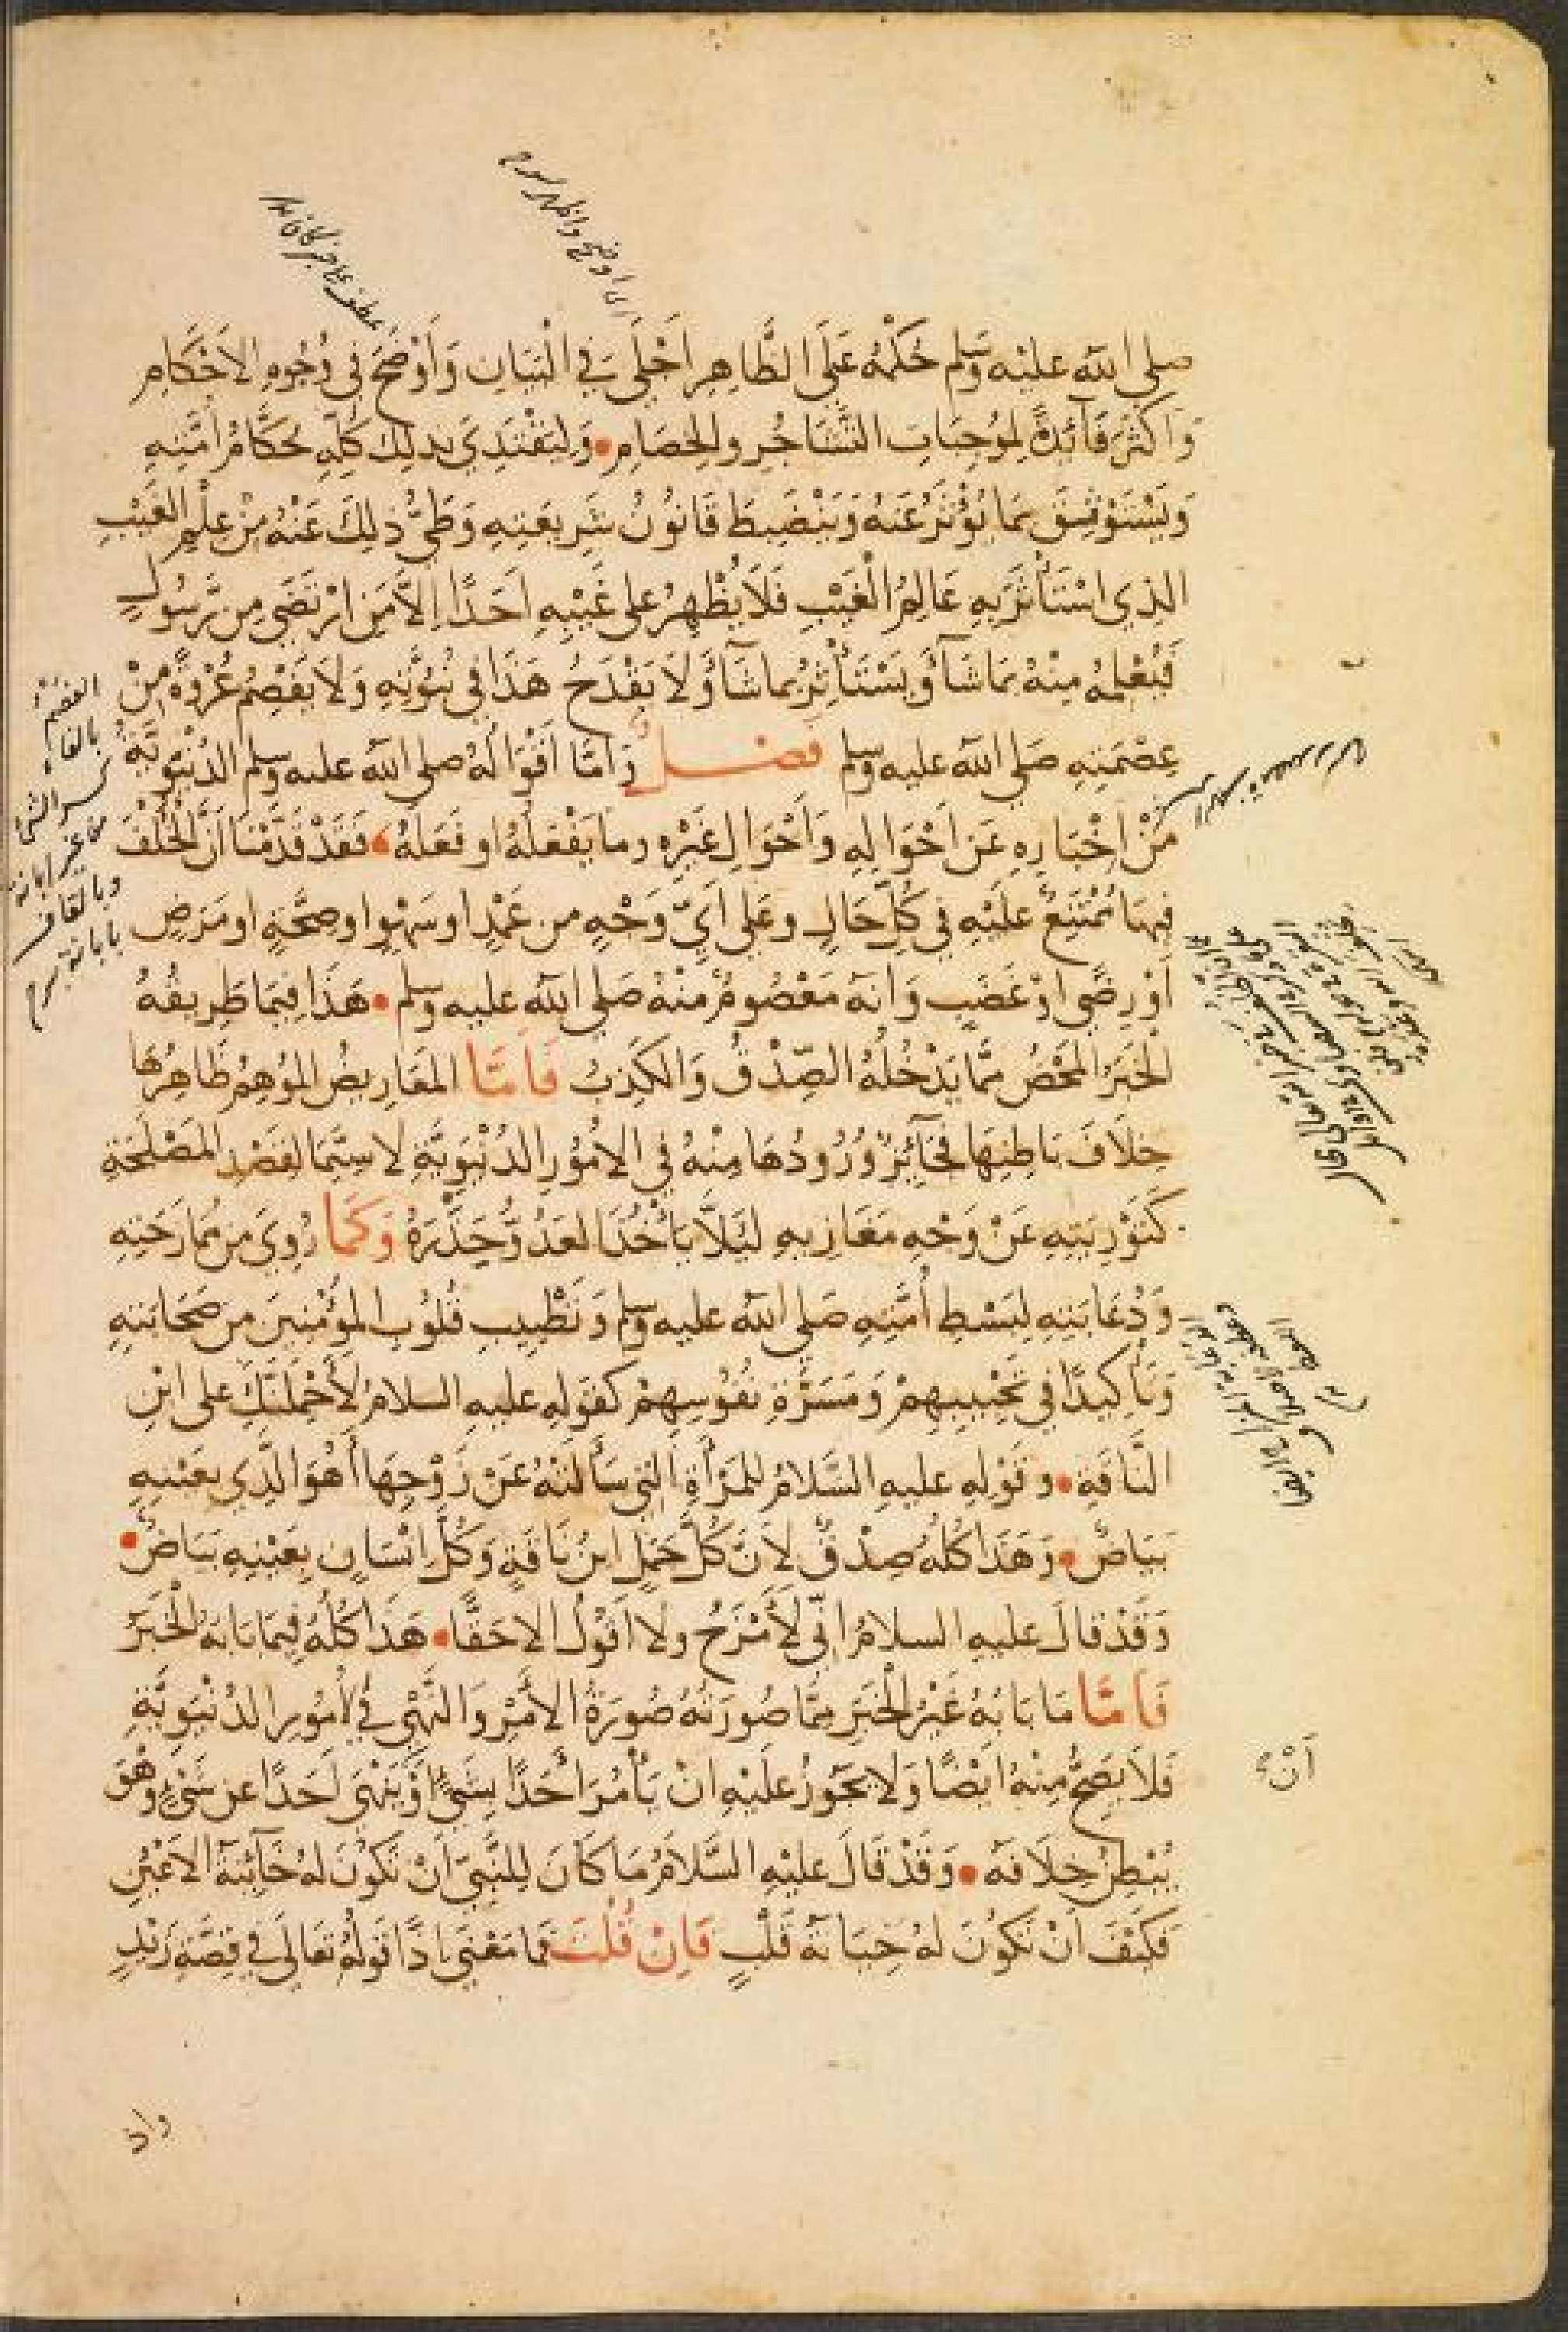 صلى الله عليه وسلم حُكْمُهُ عَلَى الظَّاهِرِ اَجْلَى فِي الْبَيَانِ وَاَوْضَحُ فِي وُجُوهِ الاَحْكَامِ
وَاَكْثَرُ فَائِدَةً لِمُوجِبَاتِ التَّشَاجُرِ والخِصَامِ • وَلِيَقْتَدِيَ بذلِكَ كُلِّهِ حُكَّامُ اُمَّتِهِ
وَيَسْتَوْثِقَ بمَا يُؤْثَرُ عَنهُ وَيَنْضَبِطَ قَانُونُ شَرِيعَتِهِ وَطَيُّ ذلِكَ عَنْهُ مِنْ عِلْمِ الغَيْبِ
الذِي اسْتَأْثَرَ بِهِ عَالِمُ الْغَيْبِ فَلَا يُظْهِرُ على غَيْبِهِ اَحَدًا اِلاَّ مَنِ ارْتَضَى مِن رَّسُولٍ
فَيُعْلِمُهُ مِنْهُ بمَا شَآءَ وَيَسْتَأْثِرُ بما شَآءَ وَلَا يَقْدَحُ هَذَا فِي نُبُوَّتِهِ وَلَا يَفْصِمُ عُرْوَةً مِنْ
عِصْمَتِهِ صَلى الله عليه وسلم فَصْل وَاَمَّا اَقْوَالُهُ صلى الله عليه وسلم الدُنْيَوِيَّةُ
مِنْ اِخْبَارِهِ عَن اَحْوَالِهِ وَاَحْوَالِ غَيْرِهِ وما يَفْعَلُهُ او فَعَلَهُ • فَقَدْ قَدَّمْنَا اَنَّ الْخُلْفَ
فِيهَا مُمْتَنِعٌ عَلَيْهِ فِي كُلِّ حَالٍ وعَلى اَيِّ وَجْهٍ من عَمْدٍ او سَهْوٍ او صِحَّةٍ او مَرَضٍ
اَوْ رِضًى اوْ غَضَبٍ وَانَهُ مَعْصُومٌ مِنْهُ صَلى الله عليه وسلم • هَذَا فِيمَا طَرِيقُهُ
الْخَبَرُ المَحْضُ مِمَّا يَدْخُلُهُ الصِّدْقُ وَالكَذِبُ فَاَمَّا المَعَارِيضُ المُوهِمُ ظَاهِرُهَا
خِلَافَ بَاطِنِهَا فَجَآئِزٌ وُرُودُهَا مِنْهُ فِي الاُمُورِ الدُنْيَوِيَّةِ لا سِيَّمَا لِقَصْدِ المَصْلَحَةِ
كَتَوْرِيَتِهِ عَنْ وَجْهِ مَغَازِيهِ لِيَلَّا يَأْخُذَ العَدُوُّ حِذْرَهُ وَكَمَا رُوِيَ مِن مُمَازَحَتِهِ
وَدُعَابَتِهِ لِبَسْطِ اُمَّتِهِ صَلى الله عليه وسلم وَتَطْيِيبِ قُلُوبِ المُؤْمِنِينَ مِن صَحَابَتِهِ
وَتَأْكِيدًا فِي تَحَبُّبِهِمْ وَمَسَرَّةِ نُفُوسِهِمْ كقَولِهِ عليهِ السلامُ لَاَحْمِلَنَّكَ على ابْنِ
النَّاقَةِ • وقَوْلِهِ عليهِ السَّلامُ للمَرْأَةِ التِي سَأَلَتْهُ عَنْ زَوْجِهَا اَهُوَ الَّذِي بعَيْنِهِ
بَيَاضٌ • وَهَذَا كُلُّهُ صِدْقٌ لاَنَّ كُلَّ جَمَلٍ ابنُ نَاقَةٍ وَكُلَّ اِنْسَانٍ بِعَيْنِهِ بَيَاضٌ •
وَقَدْ قالَ عليهِ السلامُ اِنِّي لَاَمْزَحُ ولا اَقُولُ الا حَقًّا • هَذَا كُلُّهُ فِيمَا بَابُهُ الْخَبَرُ
فَاَمَّا مَا بَابُهُ غَيْرُ الْخَبَرِ مِمَّا صُورَتُهُ صُورَةُ الاَمْرِ وَالنَّهْيِ فِي الاُمُورِ الدُنْيَوِيَّةِ
فَلاَ يَصِحُّ مِنْهُ اَيْضًا وَلا يجُوزُ عَلَيْهِ انْ يَأْمُرَ اَحَدًا بِشَيْءٍ اَوْ يَنْهَى اَحَدًا عن شَيْءٍ وَهُوَ
يُبْطِنُ خِلَافَهُ • وَقَدْ قَالَ عليْهِ السَّلاَمُ مَا كَانَ لِلنَّبِيِّ اَنْ تَكُونَ لهُ خَآئِنَةُ الاَعْيُنِ
فَكَيْفَ اَنْ تَكُونَ لهُ خِيَانَةُ قَلْبٍ فَاِنْ قُلْتَ فَمَا مَعْنَى اذًا قَولُهُ تَعَالَى فِي قِصَّةِ زَيْدٍ
الفصم
بالفاء
كسر الشئ
من غير ابانة
وبالقاف
بابانة
اَنْ
واذ